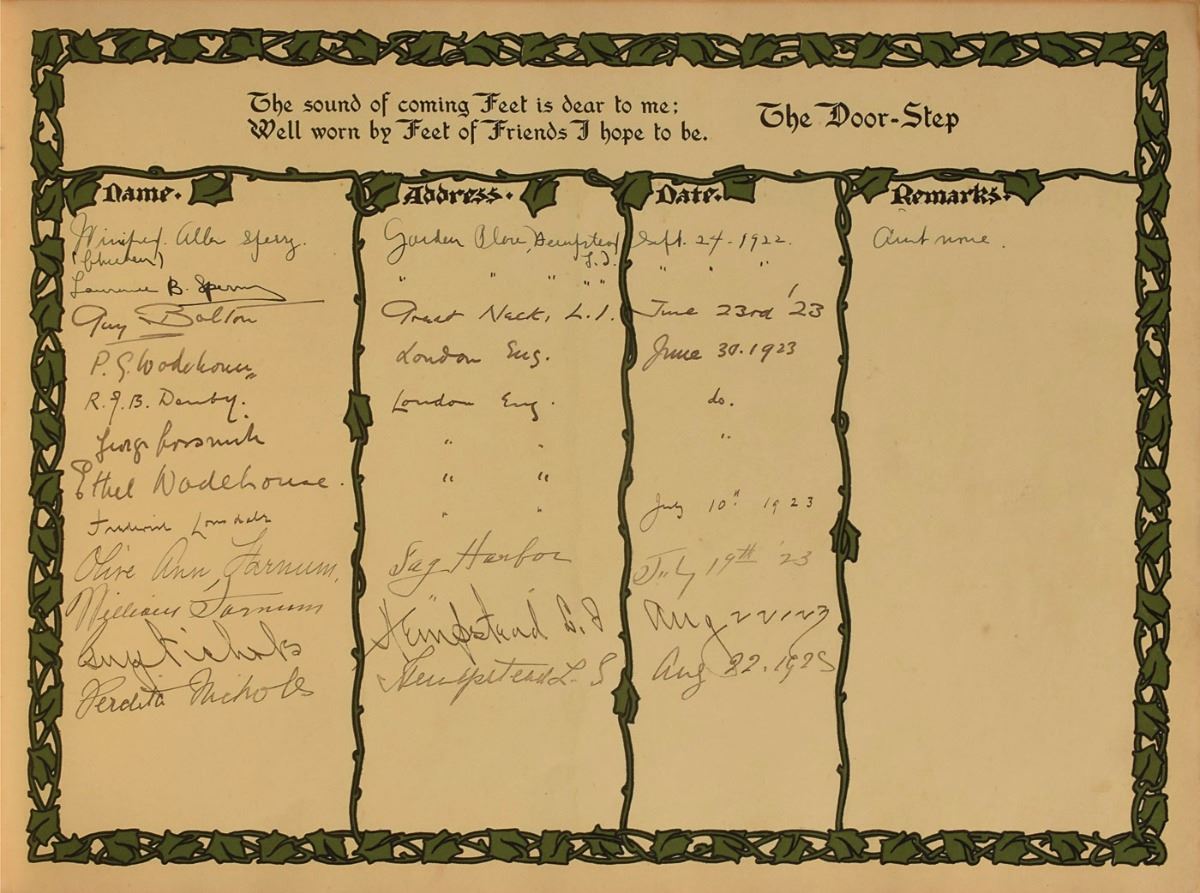 The sound of coming Feet is dear to me;
Well worn by Feet of Friends I hope to be.
The Door-Step
Name. Address. Date. Remarks.
Winifred Allen Sperry. Garden Place, Hempstead Sept. 24. 1922. Aint none.
(Chicken) L.I.
Lawrence B. Sperry " " " " " " " "
Guy Bolton Great Neck, L.I. June 23rd '23
P. G. Wodehouse London Eng. June 30. 1923
R. J. B. Denby. London Eng. do.
George Grossmith " " "
Ethel Wodehouse. " "
Frederick Lonsdale " " July 10th 1923
Olive Ann Farnum, Sag Harbor July 19th '23
William Farnum
Guy Nichols Hempstead L.I Aug 22 1923
Perdita Nichols Hempstead L. I Aug 22. 1923